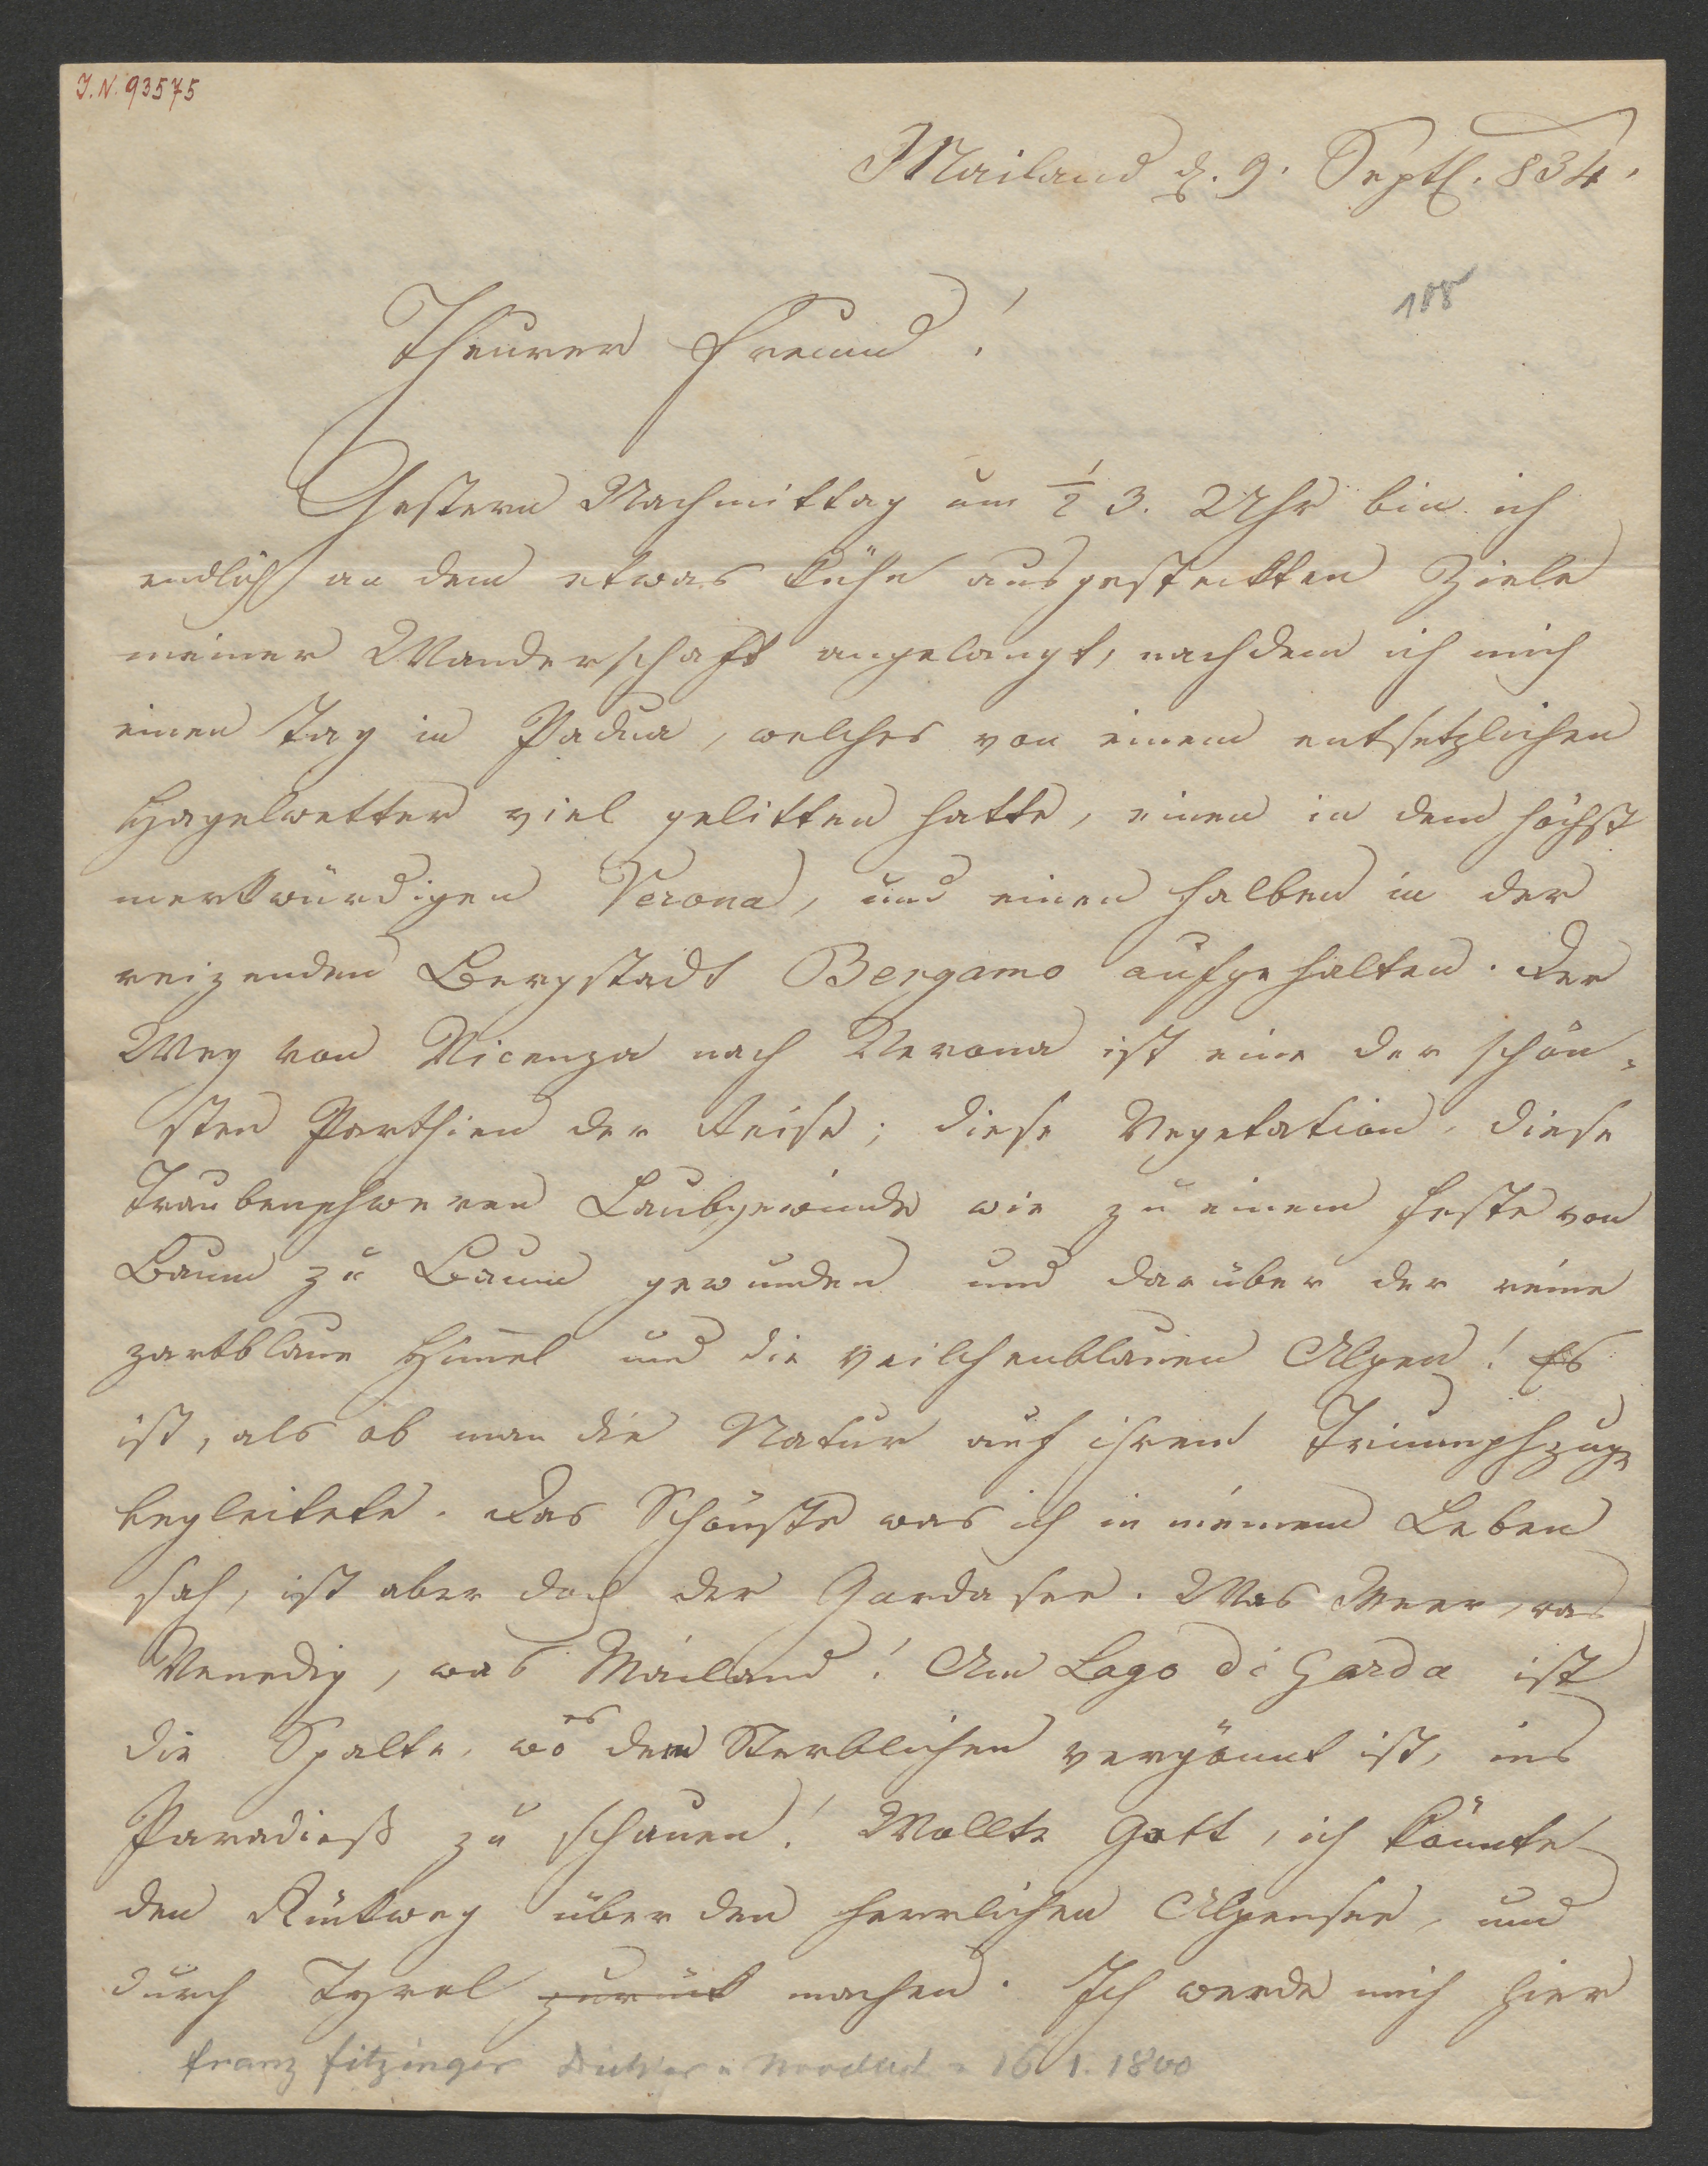 I. N. 93575
Mailand d. 9. Sept. 834.
Theurer Freund!
Gestern Nachmittag um ½ 3. Uhr bin ich
endlich an dem etwas kühn ausgestekten Ziele
meiner Wanderschaft angelangt, nachdem ich mich
einen Tag in Padua, welches von einem entsetzlichen
Hagelwetter viel gelitten hatte, einen in dem höchst
merkwürdigen Verona, und einen halben in der
reizenden Bergstadt Bergamo aufgehalten. Der
Weg von Vicenza nach Verona ist eine der schön-
sten Parthien der Reise; diese Vegetation, diese
traubenschweren Laubgewinde wie zu einem Feste von
Baum zu Baum gewunden und darüber der reine
zartblaue Him̅el und die veilchenblauen Alpen! Es
ist, als ob man die Natur auf ihrem Triumphzuge
begleitete. Das Schönste was ich in meinem Leben
sah, ist aber doch der Gardasee. Was Meer, was
Venedig, was Mailand! Am Lago di Garda ist
die Spalte, wo es dem Sterblichen vergönnt ist, ins
Paradieß zu schauen! Wollte Gott, ich könnte
den Rükweg über den herrlichen Alpensee, und
durch Tyrol zurük machen. Ich werde mich hier
Franz Fitzinger Dichter 16 1. 1800